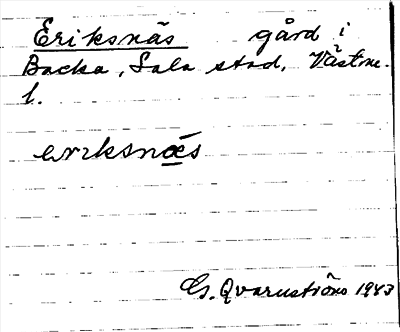 Eriksnäs gård i
Backa, Sala stad, Västm.
l.
eriksnæ̲s
G. Qvarnström 1943